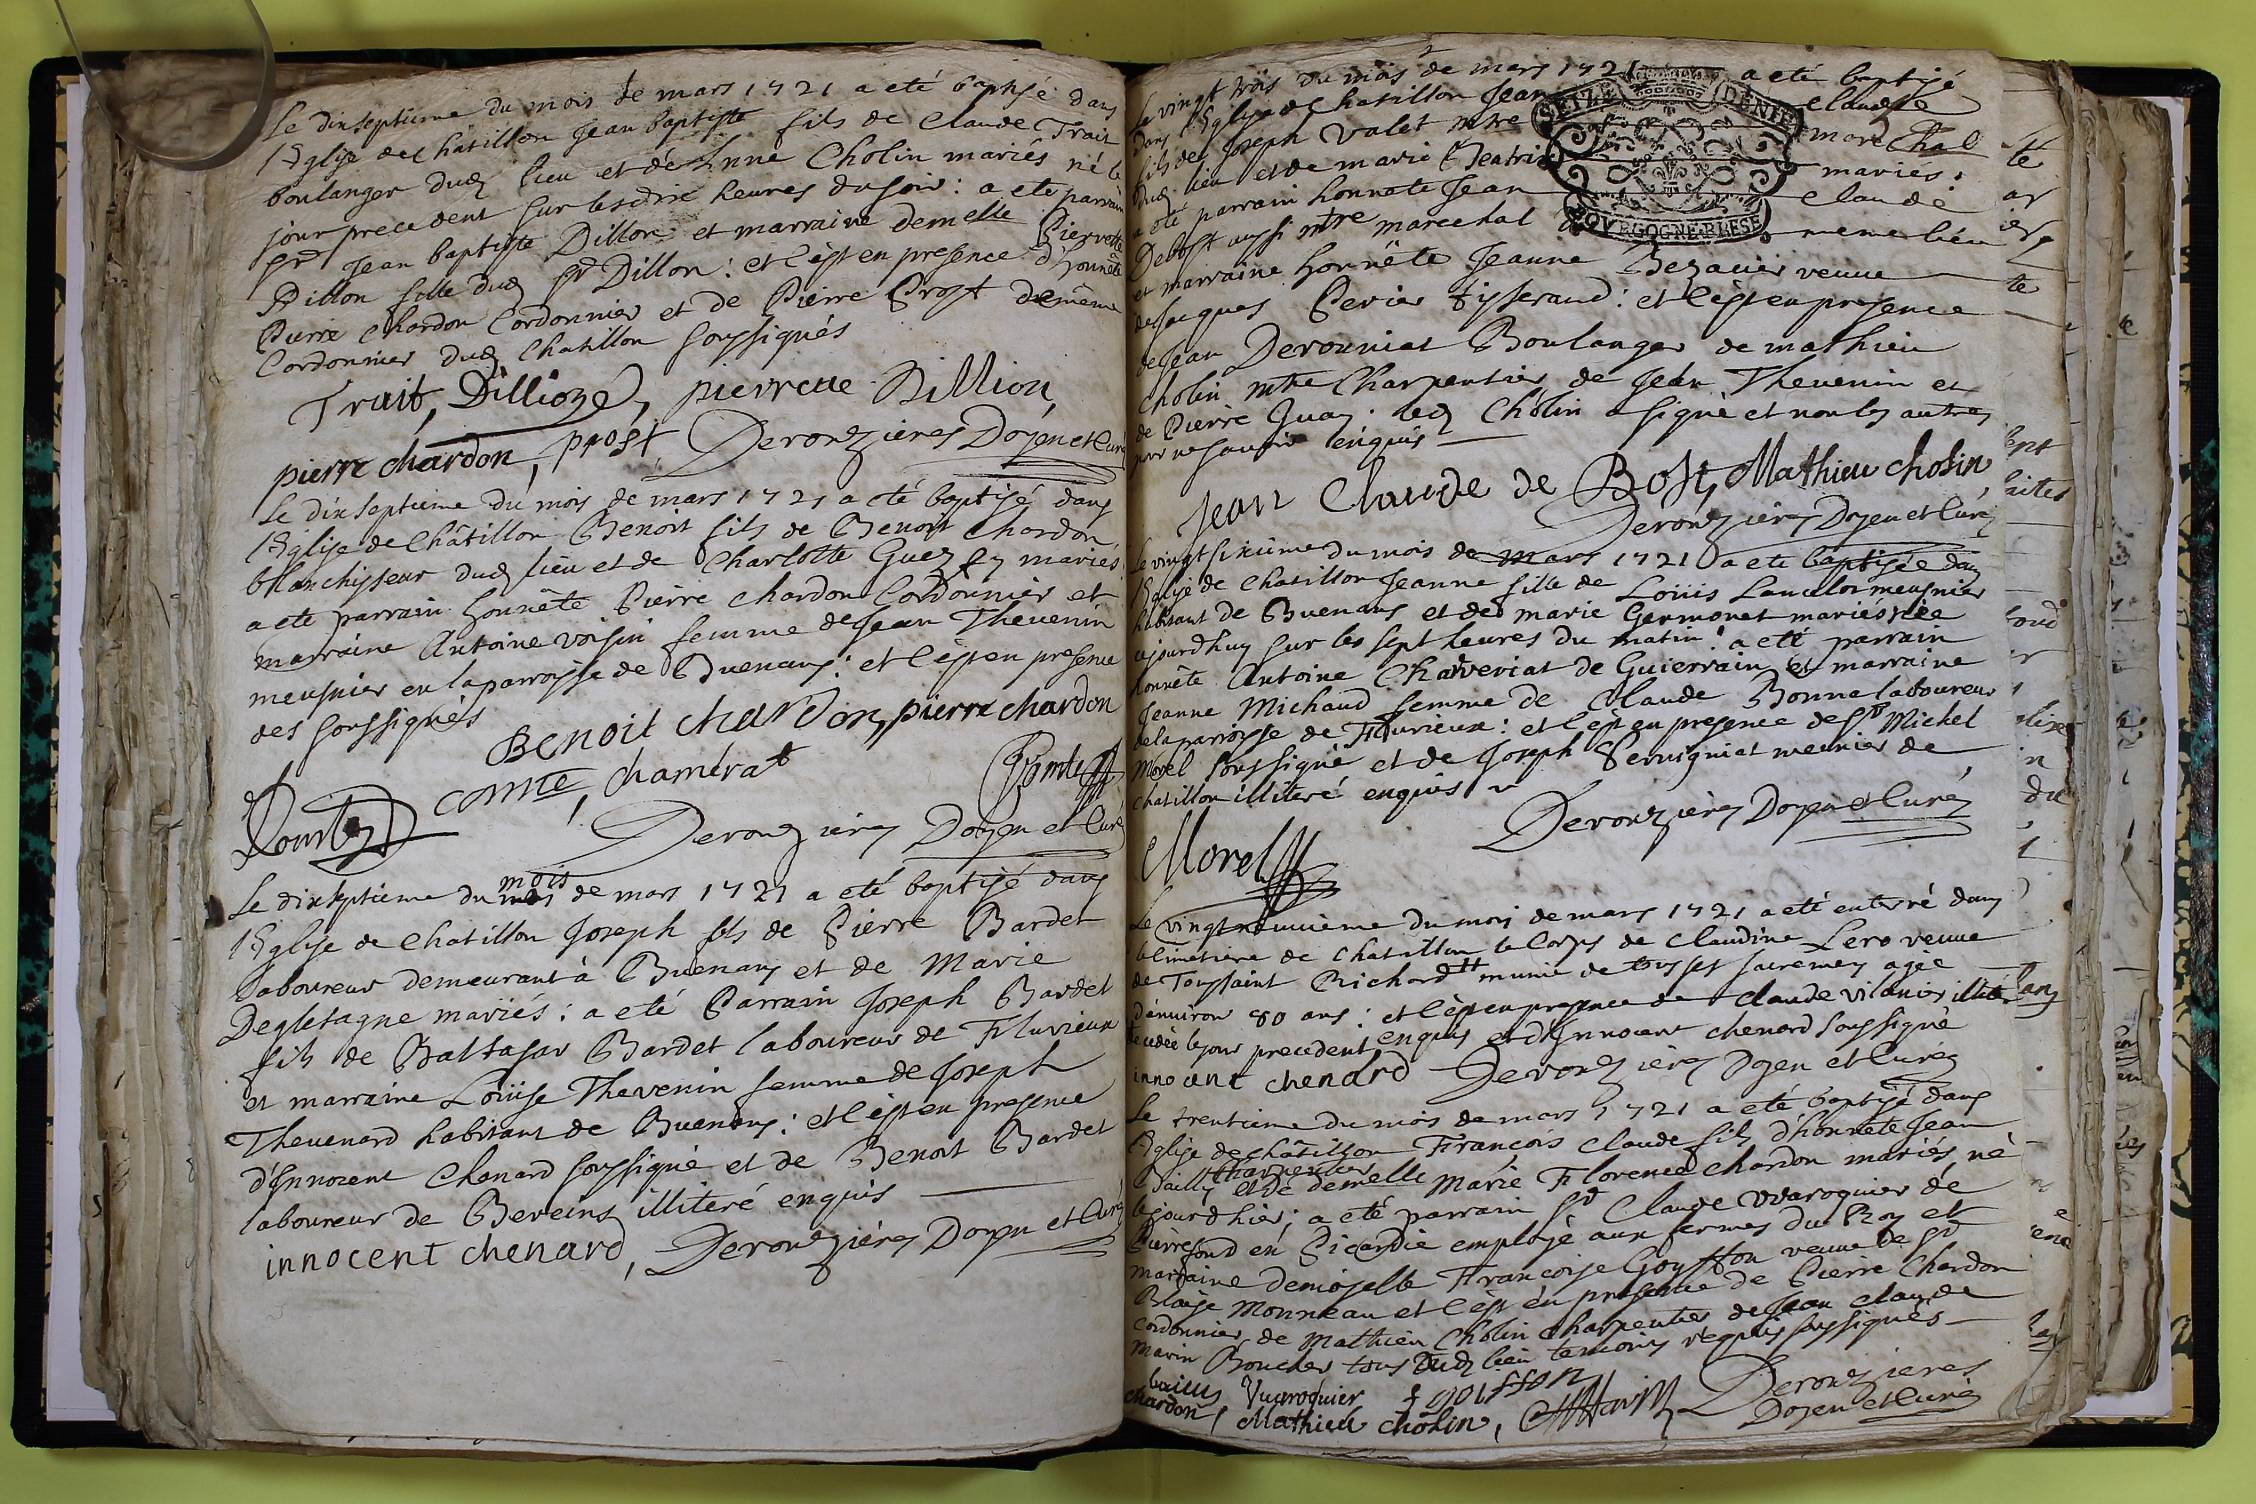 Le dixseptiéme du mois de mars 1721 a eté baptisé dans
l'Eglise de Châtillon Jean baptiste fils de Claude Trait
boulanger dud lieu et de Anne Cholin mariés né le
jour precedent sur les dix heures du soir : a ete parrain
sr Jean baptiste Dillon et marraine demelle Pierrette
Dillon fille dud sr Dillon : et c'est en presence d'honnête
Pierre chardon Cordonnier et de Pierre Prost de même
Cordonnier dud Chatillon soussignés
Trait, Dillion, pierrette Dillion,
pierre chardon, prost, Derouzieres Doyen et Curé
Le dixseptieme du mois de mars 1721 a eté baptisé dans
l'Eglise de Châtillon Benoit fils de Benoit Chardon
blanchisseur dud lieu et de Charlotte mariés
a ete parrain honnête Pierre chardon Cordonnier et
marraine Antoine voisin femme de Jean Thevenin
meusnier en la parroisse de Buenans : et c'est en presence
des soussignés
Benoit chardon, pierre chardon
comte, chamérat
Derouzieres Doyen et Curé
Le dixseptieme du mois de mars 1721 a eté baptisé dans
l'Eglise de Chatillon Joseph fils de Pierre Bardet
laboureur demeurant à Buenans et de Marie
Degletagne mariés : a eté Parrain Joseph Bardet
fils de Baltasar Bardet laboureur de Fluvieux
et marraine Loüise Thevenin femme de Joseph
Thevenard habitant de Buenans : et c'est en presence
d'Innocent Chenard soussigné et de Benoit Bardet
laboureur de Bereins illiteré enquis
innocent chenard, Derouziéres Doyen et Curé
Le vingt trois du mois de mars 1721 a eté baptisé
dans l'Eglise de Chatillon Jean Claude
fils de Joseph Valet mtre marechal
dud lieu et de marie Beatrix mariés :
a eté parrain honnête Jean Claude
Debost aussi mtre marechal du meme lieu
et marraine honnête Jeanne veuve
de Jacques Perier tisserand : et c'est en presence
de Jean Derouniat Boulanger de mathieu
Cholin mtre Charpentier de Jean Thevenin et
de Pierre Juan. led Cholin a signé et non les autres
pour ne savoir enquis
SEIZE DENIE
BOVRGOGNE BRESSE
Jean Claude de Bost, Mathieu cholin
Derouzieres Doyen et Curé
Le vingt sixiéme du mois de mars 1721 a eté baptisée dans
l'Eglise de Chatillon Jeanne fille de Loüis Lancelot meusnier
habitant de Buenans et de marie Germonet mariés née
aujourdhuy sur les sept heures du matin : a eté parrain
honnête Antoine Charveriat de Guierrain et marraine
Jeanne Michaud femme de Claude Bonna laboureur
de la parroisse de Fluvrieux : et c'est en presence de sr Michel
Morel soussigné et de Joseph Peruigniat meunier de
chatillon illiteré enquis
Derouzieres Doyen et Curé
Morel
Le vingt neuvieme du mois de mars 1721 a eté enterré dans
le Cimetiere de Chatillon le Corps de Claudine Lero veuve
de Toussaint Richard munie de tous ses sacremens agée
d'environ 80 ans : et c'est en presence de Claude vilanier illiteré
decedée le jour precedent enquis et d'Innocent chenard soussigné
innocent chenard Derouzieres Doyen et Curé
Le trentieme du mois de mars 1721 a eté baptisé dans
l'Eglise de châtillon François Claude fils d'honnête Jean
Bailly charpentier et de demelle Marie Florence chardon mariés, né
le jour d'hier ; a eté parrain sr Claude Waroquier de
Pierrefond en Picardie employé aux fermes du Roy et
marraine demoiselle Françoise Goyffon veuve de sr
Blaise Monneau et c'est en presence de Pierre Chardon
cordonnier de Mathieu Cholin charpentier de Jean claude
Marin Boucher tous dud lieu temoins requis soussignés
bailly Vuaroquier f goiffon
chardon, Mathieu cholin, Marin Derouzieres
Doyen et Curé